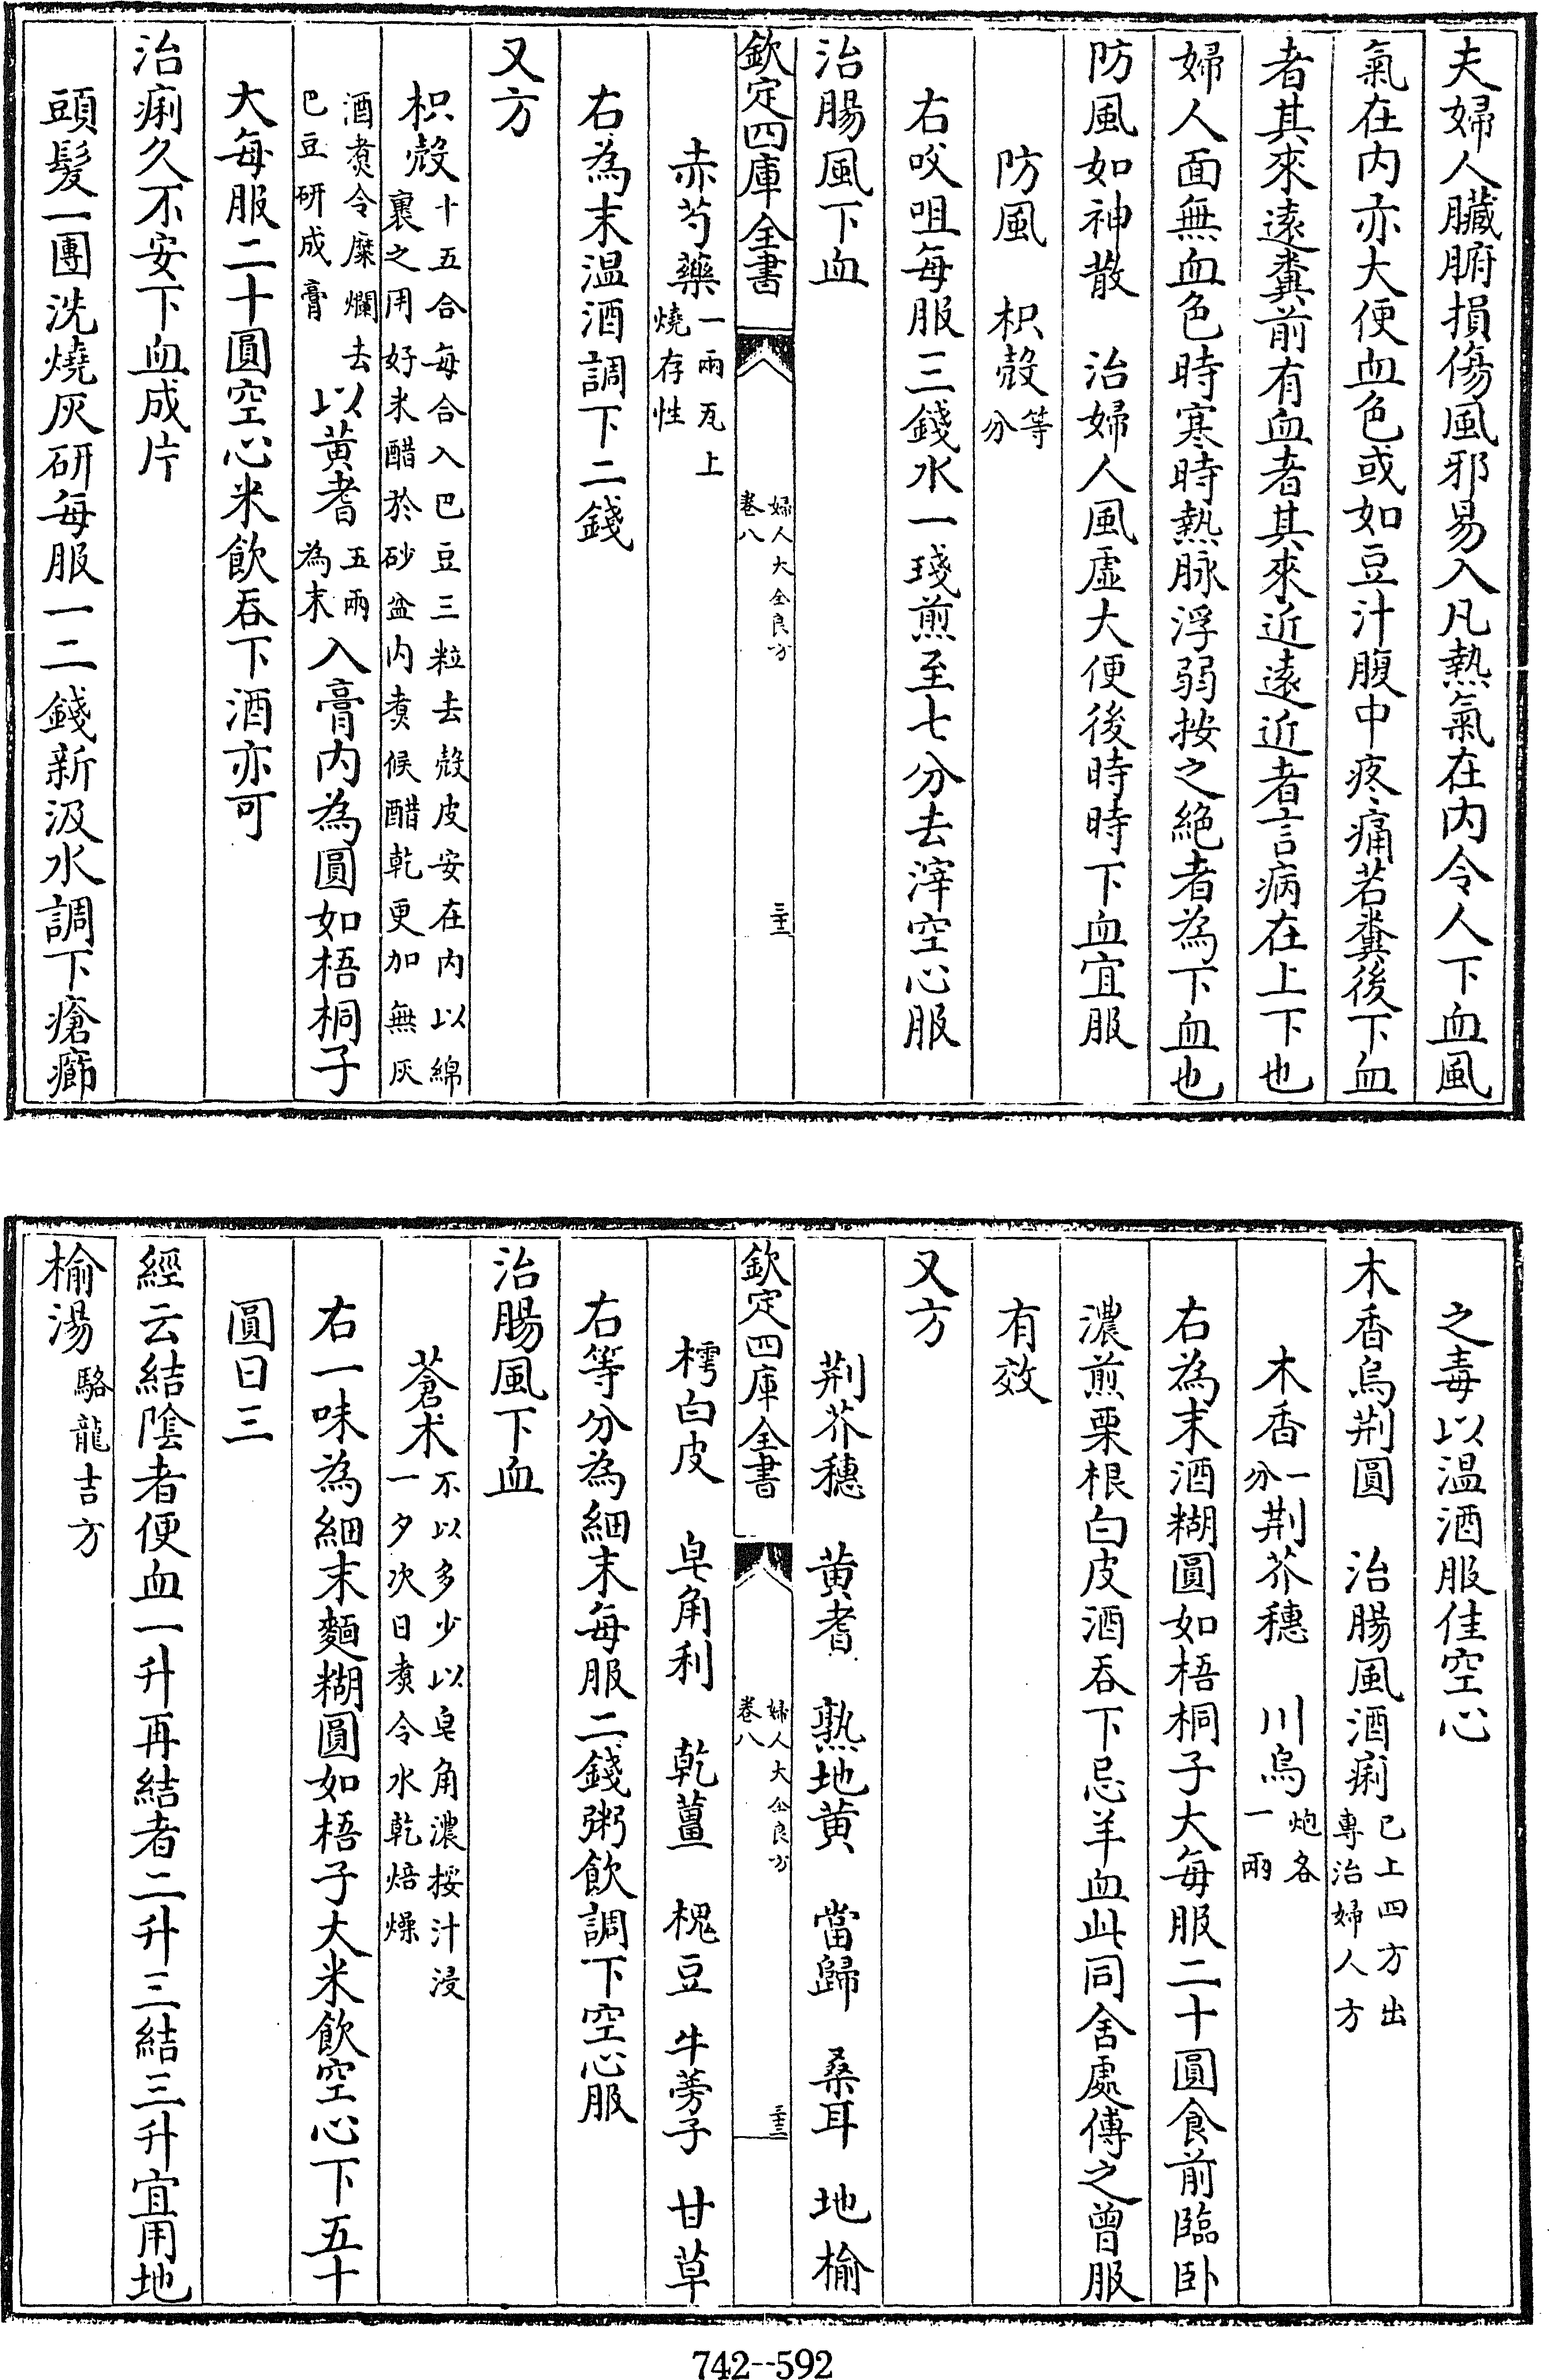 夫婦人臟腑損傷風邪易入凡熱氣在内令人下血風
氣在内亦大便血色或如豆汁腹中疼痛若糞後下血
者其來遠糞前有血者其來近遠近者言病在上下也
婦人面無血色時寒時熱脉浮弱按之絶者為下血也
防風如神散　治婦人風虚大便後時時下血宜服
防風　枳殻等分
右㕮咀每服三錢水一琖煎至七分去滓空心服
治腸風下血
欽定四庫全書　卷八　婦人大全良方　三十二
赤芍藥一兩瓦上燒存性
右為末温酒調下二錢
又方
枳殻十五合每合入巴豆三粒去殻皮安在内以綿裹之用好米醋於砂盆内煑候醋乾更加無灰
酒煑令糜爛去巴豆研成膏以黄耆五兩為末入膏内為圓如梧桐子
大每服二十圓空心米飲吞下酒亦可
治痢久不安下血成片
頭髮一團洗燒灰研每服一二錢新汲水調下瘡癤
之毒以温酒服佳空心
木香烏荆圓　治腸風酒痢已上四方出專治婦人方
木香一分荆芥穗　川烏炮各一兩
右為末酒糊圓如梧桐子大每服二十圓食前臨卧
濃煎栗根白皮酒吞下忌羊血此同舍處傳之曾服
有效
又方
荆芥穗　黄耆　熟地黄　當歸　桑耳　地榆
欽定四庫全書　卷八　婦人大全良方　三十三
樗白皮　皂角利　乾薑　槐豆　牛蒡子　甘草
右等分為細末每服二錢粥飲調下空心服
治腸風下血
蒼术不以多少以皂角濃挼汁浸一夕次日煑令水乾焙燥
右一味為細末麵糊圓如梧子大米飲空心下五十
圓日三
經云結陰者便血一升再結者二升三結三升宜用地
榆湯駱龍吉方
742--592